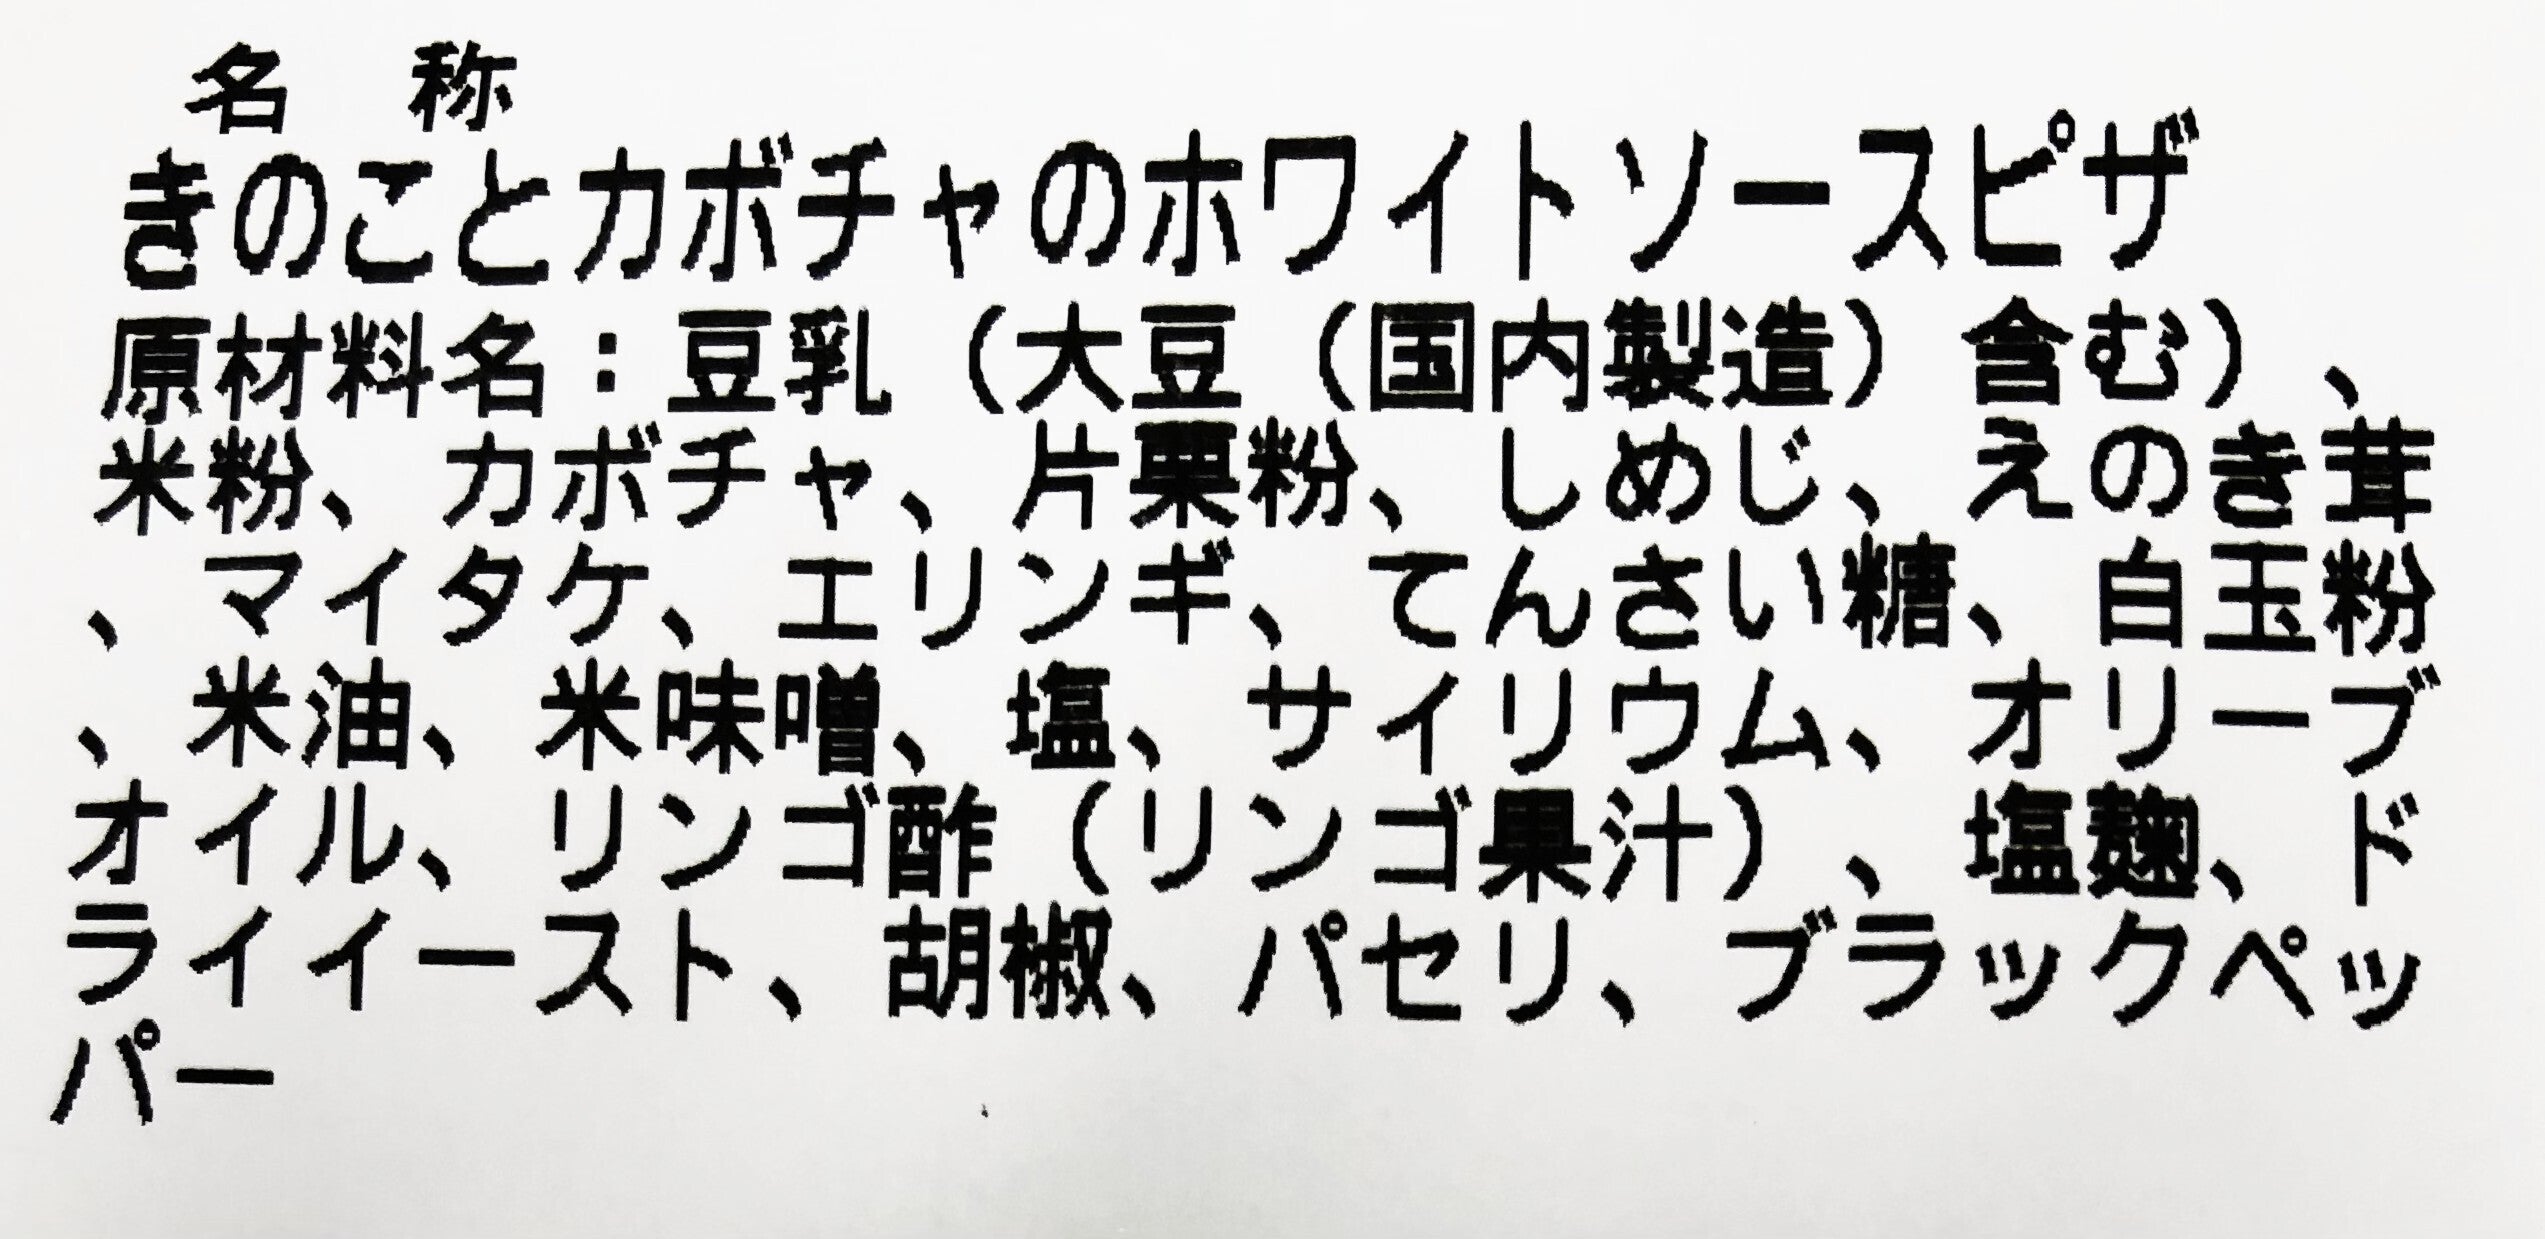 名　称
きのことカボチャのホワイトソースピザ
原材料名：豆乳（大豆（国内製造）含む）、
米粉、カボチャ、片栗粉、しめじ、えのき茸
、マイタケ、エリンギ、てんさい糖、白玉粉
、米油、米味噌、塩、サイリウム、オリーブ
オイル、リンゴ酢（リンゴ果汁）、塩麹、ド
ライイースト、胡椒、パセリ、ブラックペッ
パー